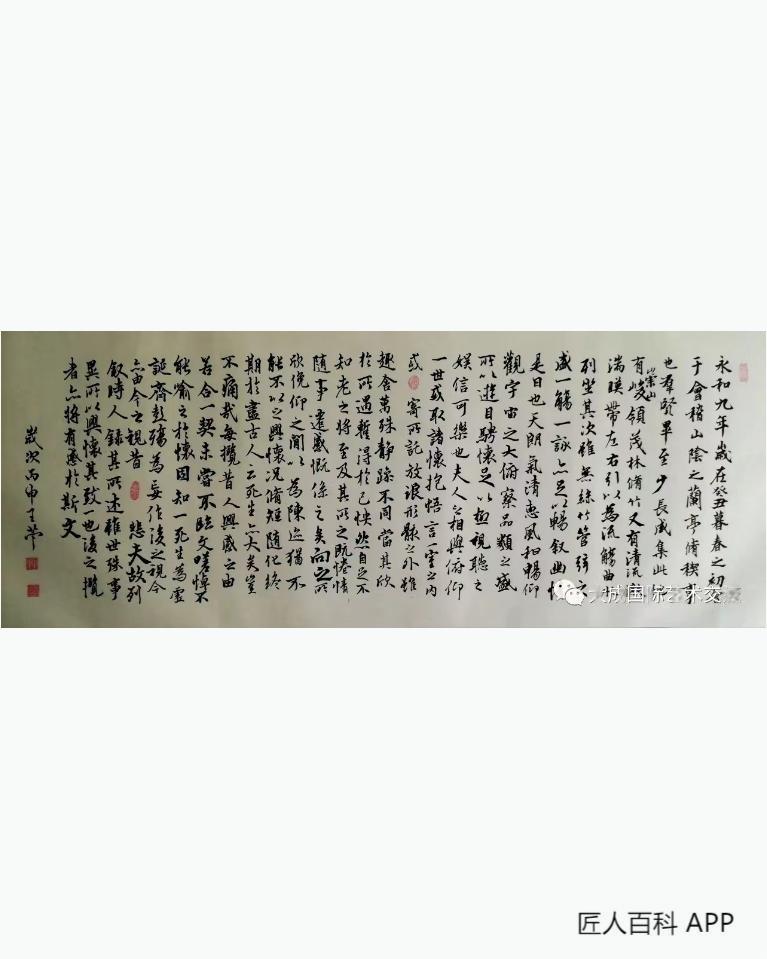 永和九年歲在癸丑暮春之初會
于會稽山陰之蘭亭脩稧事
也羣賢畢至少長咸集此地
有崇山峻領茂林脩竹又有清流激
湍暎帶左右引以為流觴曲水
列坐其次雖無絲竹管弦之
盛一觴一詠亦足以暢叙幽情
是日也天朗氣清惠風和暢仰
觀宇宙之大俯察品類之盛
所以遊目騁懷足以極視聽之
娛信可樂也夫人之相與俯仰
一世或取諸懷抱悟言一室之內
或寄所託放浪形骸之外雖
趣舍萬殊靜躁不同當其欣
於所遇暫得於己怏然自足不
知老之將至及其所之既惓情
隨事遷感慨係之矣向之所
欣俛仰之閒以為陳迹猶不
能不以之興懷況脩短隨化終
期於盡古人云死生亦大矣豈
不痛哉每攬昔人興感之由
若合一契未嘗不臨文嗟悼不
能喻之於懷固知一死生為虛
誕齊彭殤為妄作後之視今
亦由今之視昔悲夫故列
叙時人錄其所述雖世殊事
異所以興懷其致一也後之攬
者亦將有感於斯文
歲次丙申
國际艺术交
匠人百科 APP